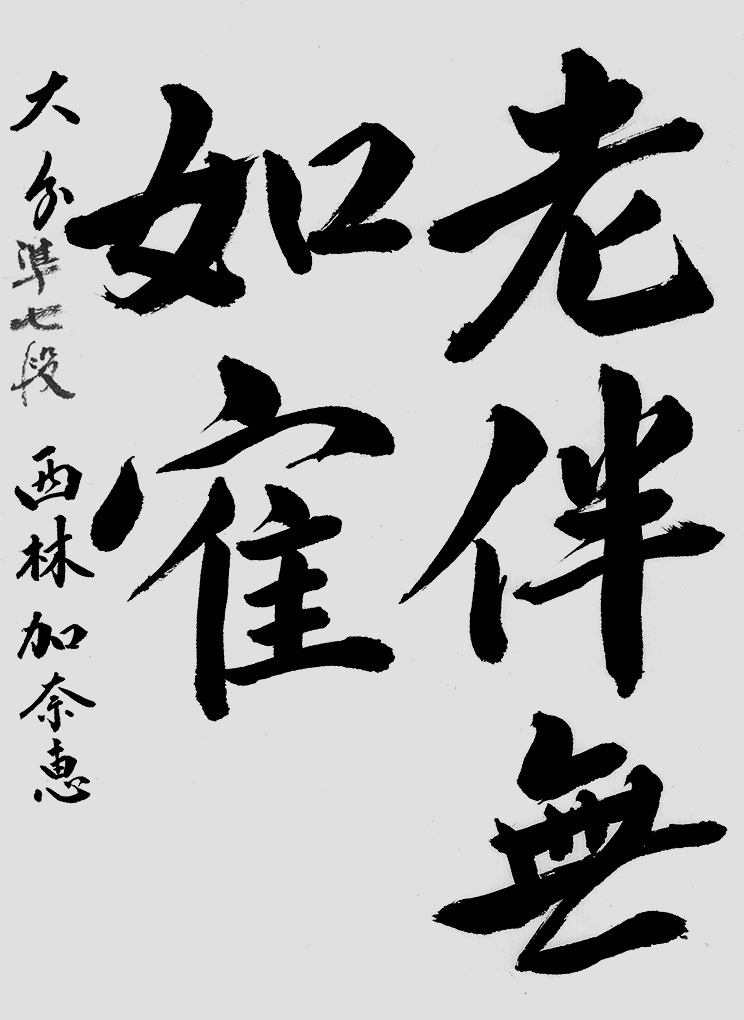 老伴無
如寉
大分準七段 西林加奈恵